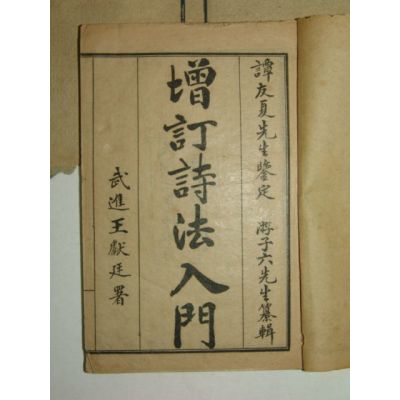 譚友夏先生鑒定 游子六先生纂輯
增訂詩法入門
武進王獻廷署